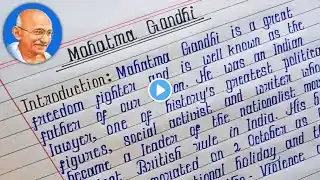 Mahatma Gandhi
Introduction: Mahatma Gandhi is a great
freedom fighter and is well known as the
father of our He was an Indian
lawyer, one of history's greatest political
figures, social activist and writer who
became a leader of the nationalist mov
British rule in India. His
morated on 2 October as
national holiday, and
Violence